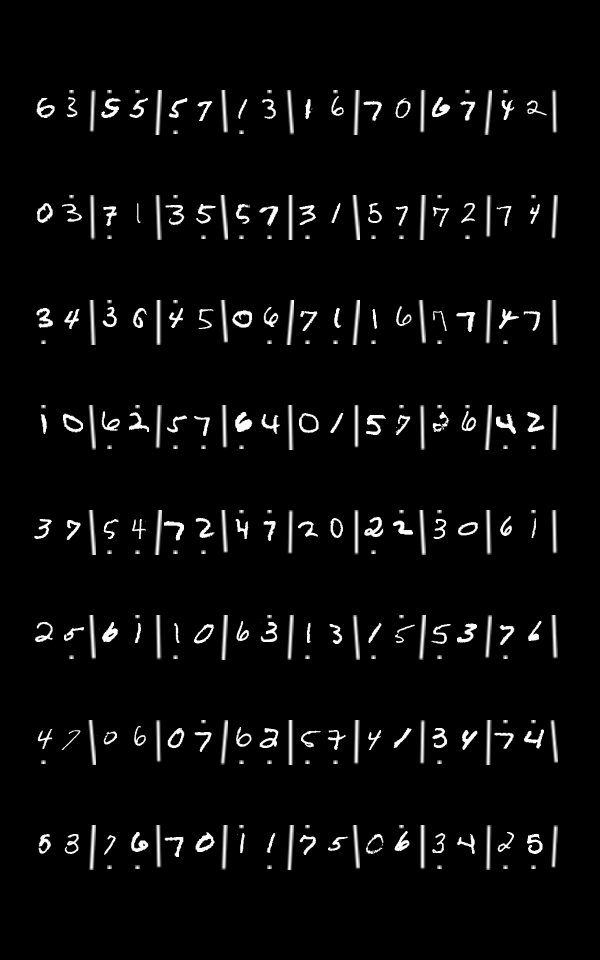 6 3 | 5 5 | 5 7 | 1 3 | 1 6 | 7 0 | 6 7 | 4 2 |
0 3 | 7 1 | 3 5 | 5 7 | 3 1 | 5 7 | 7 2 | 7 4 |
3 4 | 3 6 | 4 5 | 0 6 | 7 1 | 1 6 | 7 7 | 4 7 |
1 0 | 6 2 | 5 7 | 6 4 | 0 1 | 5 7 | 3 6 | 4 2 |
3 7 | 5 4 | 7 2 | 4 7 | 2 0 | 2 2 | 3 0 | 6 1 |
2 5 | 6 1 | 1 0 | 6 3 | 1 3 | 1 5 | 5 3 | 7 6 |
4 7 | 0 6 | 0 7 | 6 2 | 5 7 | 4 1 | 3 4 | 7 4 |
5 3 | 7 6 | 7 0 | 1 1 | 7 5 | 0 6 | 3 4 | 2 5 |